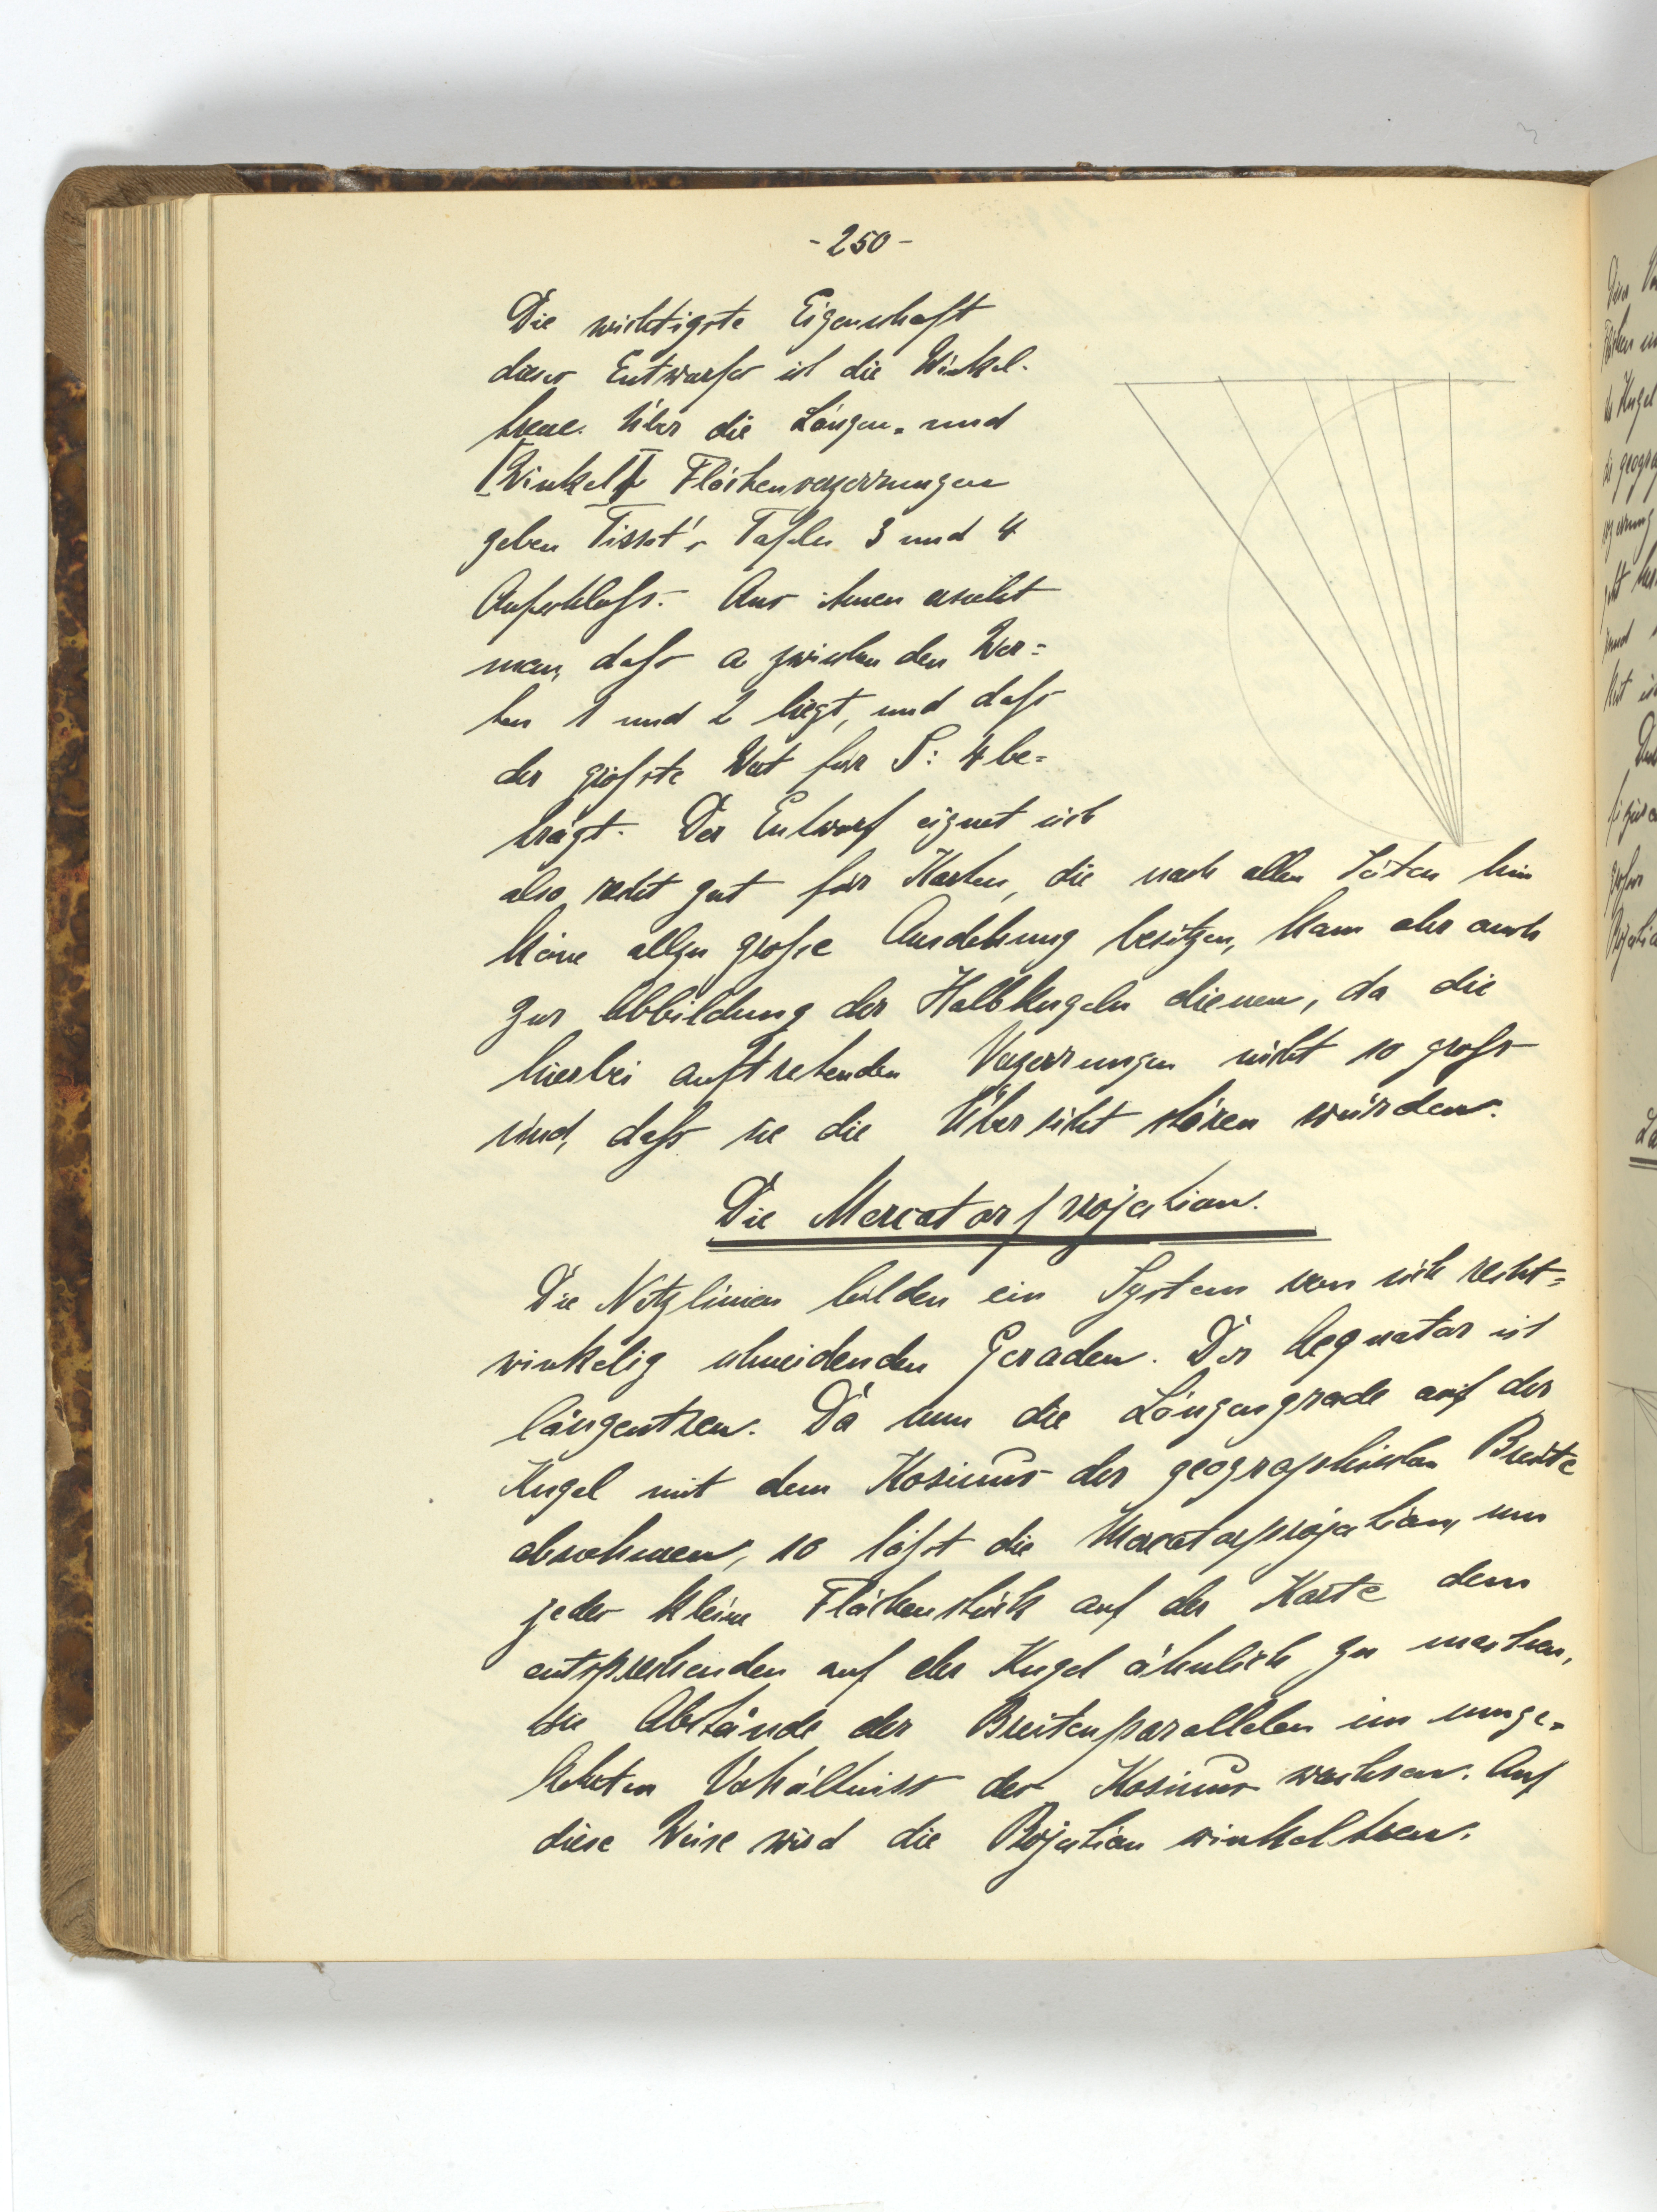 - 250 -
Die wichtigste Eigenschaft
dieses Entwurfes ist die Winkel-
treue. Über die Längen- und
[Winkel] Flächenverzerrungen
geben Tissot's Tafeln 3 und 4
Aufschluss. Aus ihnen ersieht
man, dass a zwischen den Wer=
ten 1 und 2 liegt, und dass
der grösste Wert für S: 4 be=
trägt. Der Entwurf eignet sich
also recht gut für Karten, die nach allen Seiten hin
keine allzu grosse Ausdehnung besitzen, kann aber auch
zur Abbildung der Halbkugeln dienen, da die
hierbei auftretenden Verzerrungen nicht so gross
sind, dass sie die Übersicht stören würden.
Die Mercatorprojection.
Die Netzlinien bilden ein System von sich recht=
winkelig schneidenden Geraden. Der Aequator ist
längentreu. Da nun die Längengrade auf der
Kugel mit dem Kosinus der geographischen Breite
abnehmen, so lässt die Mercatorprojection, um
jedes kleine Flächenstück auf der Karte dem
entsprechenden auf der Kugel ähnlich zu machen,
die Abstände der Breitenparallelen im umge-
kehrten Verhältniss des Kosinus wachsen. Auf
diese Weise wird die Projection winkeltreu.